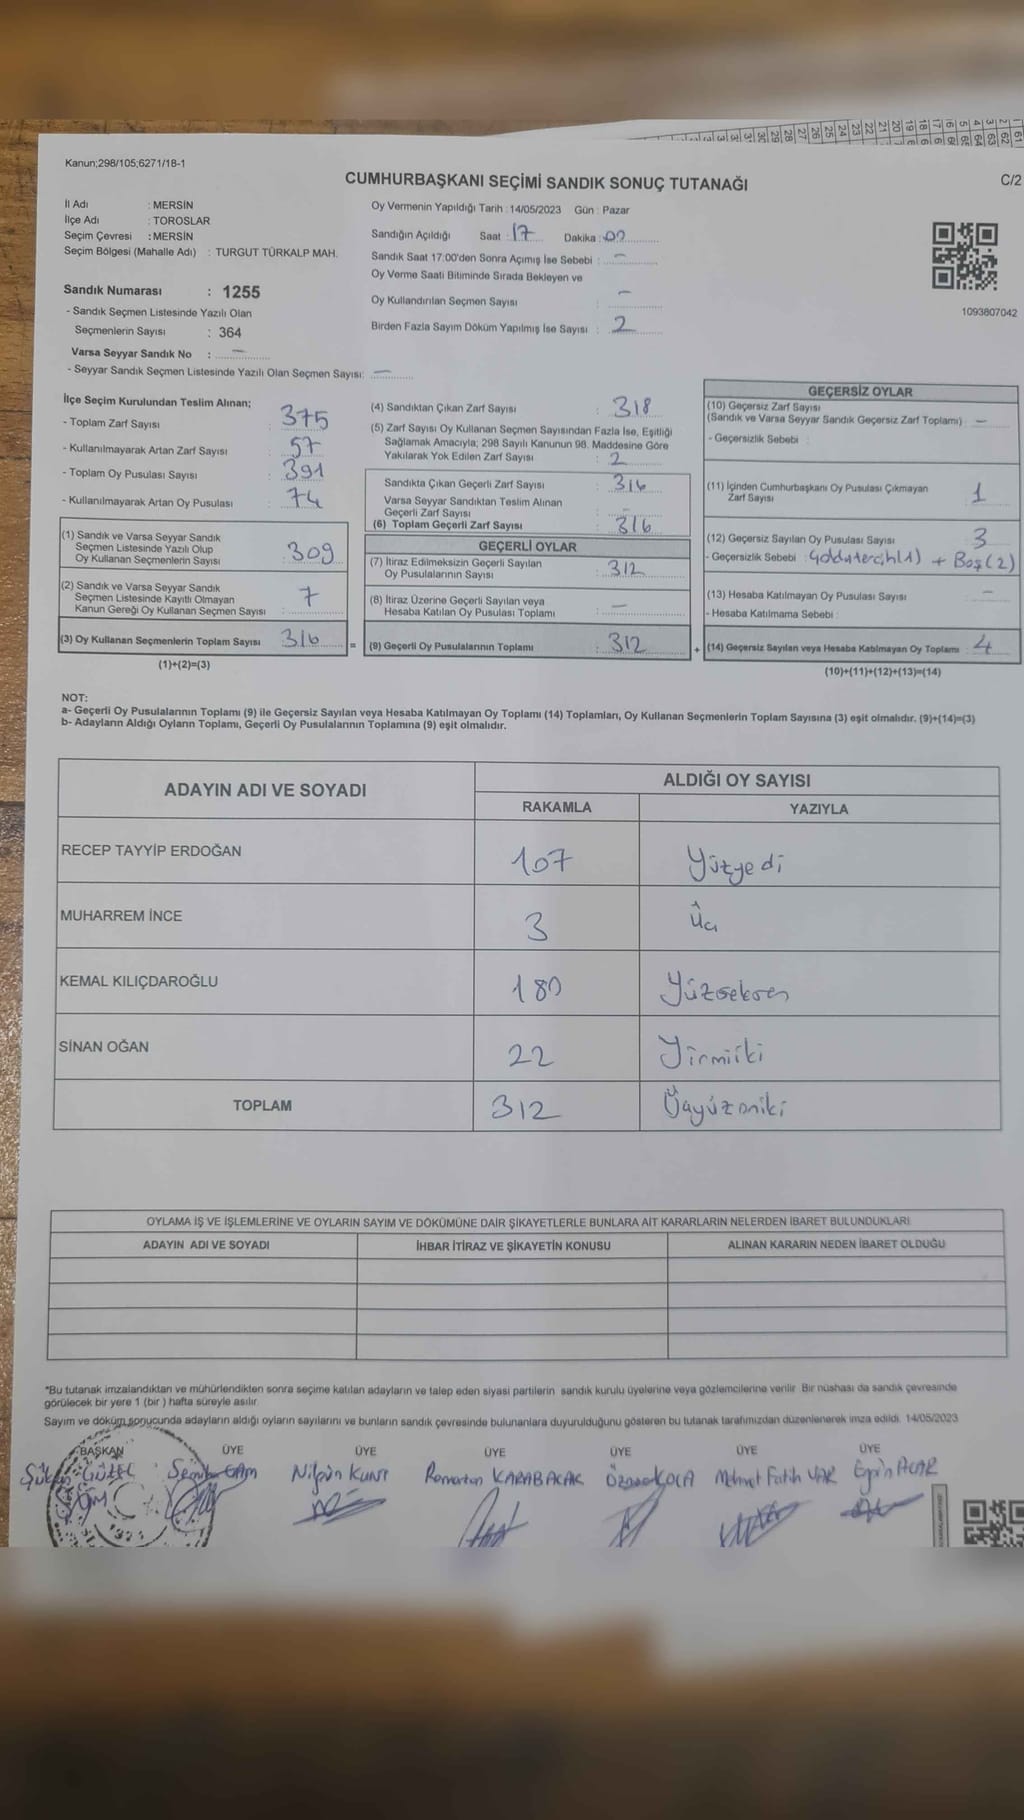 Kanun;298/105;6271/18-1
CUMHURBAŞKANI SEÇİMİ SANDIK SONUÇ TUTANAĞI
C/2
İl Adı : MERSİN
İlçe Adı : TOROSLAR
Seçim Çevresi : MERSİN
Seçim Bölgesi (Mahalle Adı) : TURGUT TÜRKALP MAH.
Oy Vermenin Yapıldığı Tarih : 14/05/2023 Gün : Pazar
Sandığın Açıldığı Saat : 17 Dakika : 00
Sandık Saat 17:00'den Sonra Açımış İse Sebebi : -
Oy Verme Saati Bitiminde Sırada Bekleyen ve
Oy Kullandırılan Seçmen Sayısı : -
Birden Fazla Sayım Döküm Yapılmış İse Sayısı : 2
1093807042
Sandık Numarası : 1255
- Sandık Seçmen Listesinde Yazılı Olan
Seçmenlerin Sayısı : 364
Varsa Seyyar Sandık No : -
- Seyyar Sandık Seçmen Listesinde Yazılı Olan Seçmen Sayısı: -
İlçe Seçim Kurulundan Teslim Alınan;
- Toplam Zarf Sayısı : 375
- Kullanılmayarak Artan Zarf Sayısı : 57
- Toplam Oy Pusulası Sayısı : 391
- Kullanılmayarak Artan Oy Pusulası : 74
(1) Sandık ve Varsa Seyyar Sandık
Seçmen Listesinde Yazılı Olup
Oy Kullanan Seçmenlerin Sayısı : 309
(2) Sandık ve Varsa Seyyar Sandık
Seçmen Listesinde Kayıtlı Olmayan
Kanun Gereği Oy Kullanan Seçmen Sayısı : 7
(3) Oy Kullanan Seçmenlerin Toplam Sayısı 316 =
(1)+(2)=(3)
(4) Sandıktan Çıkan Zarf Sayısı : 318
(5) Zarf Sayısı Oy Kullanan Seçmen Sayısından Fazla İse, Eşitliği
Sağlamak Amacıyla; 298 Sayılı Kanunun 98. Maddesine Göre
Yakılarak Yok Edilen Zarf Sayısı : 2
Sandıkta Çıkan Geçerli Zarf Sayısı : 316
Varsa Seyyar Sandıktan Teslim Alınan
Geçerli Zarf Sayısı : -
(6) Toplam Geçerli Zarf Sayısı : 316
GEÇERLİ OYLAR
(7) İtiraz Edilmeksizin Geçerli Sayılan
Oy Pusulalarının Sayısı : 312
(8) İtiraz Üzerine Geçerli Sayılan veya
Hesaba Katılan Oy Pusulası Toplamı : -
(9) Geçerli Oy Pusulalarının Toplamı : 312 +
GEÇERSİZ OYLAR
(10) Geçersiz Zarf Sayısı
(Sandık ve Varsa Seyyar Sandık Geçersiz Zarf Toplamı) : -
- Geçersizlik Sebebi :
(11) İçinden Cumhurbaşkanı Oy Pusulası Çıkmayan
Zarf Sayısı : 1
(12) Geçersiz Sayılan Oy Pusulası Sayısı : 3
- Geçersizlik Sebebi : (1) + Boş(2)
(13) Hesaba Katılmayan Oy Pusulası Sayısı : -
- Hesaba Katılmama Sebebi :
(14) Geçersiz Sayılan veya Hesaba Katılmayan Oy Toplamı : 4
(10)+(11)+(12)+(13)=(14)
NOT:
a- Geçerli Oy Pusulalarının Toplamı (9) ile Geçersiz Sayılan veya Hesaba Katılmayan Oy Toplamı (14) Toplamları, Oy Kullanan Seçmenlerin Toplam Sayısına (3) eşit olmalıdır. (9)+(14)=(3)
b- Adayların Aldığı Oyların Toplamı, Geçerli Oy Pusulalarının Toplamına (9) eşit olmalıdır.
ADAYIN ADI VE SOYADI ALDIĞI OY SAYISI
RAKAMLA YAZIYLA
RECEP TAYYİP ERDOĞAN 107 Yüzyedi
MUHARREM İNCE 3 Üç
KEMAL KILIÇDAROĞLU 180 Yüzseksen
SİNAN OĞAN 22 Yirmiiki
TOPLAM 312 Üçyüzoniki
OYLAMA İŞ VE İŞLEMLERİNE VE OYLARIN SAYIM VE DÖKÜMÜNE DAİR ŞİKAYETLERLE BUNLARA AİT KARARLARIN NELERDEN İBARET BULUNDUKLARI
ADAYIN ADI VE SOYADI İHBAR İTİRAZ VE ŞİKAYETİN KONUSU ALINAN KARARIN NEDEN İBARET OLDUĞU
*Bu tutanak imzalandıktan ve mühürlendikten sonra seçime katılan adayların ve talep eden siyasi partilerin sandık kurulu üyelerine veya gözlemcilerine verilir. Bir nüshası da sandık çevresinde
görülecek bir yere 1 (bir ) hafta süreyle asılır.
Sayım ve döküm sonucunda adayların aldığı oyların sayılarını ve bunların sandık çevresinde bulunanlara duyurulduğunu gösteren bu tutanak tarafımızdan düzenlenerek imza edildi. 14/05/2023
BAŞKAN ÜYE ÜYE ÜYE ÜYE ÜYE ÜYE
GÜZEL Nilgün KUNT Ramazan KARABACAK KOCA Mehmet Fatih VAR Engin ACAR